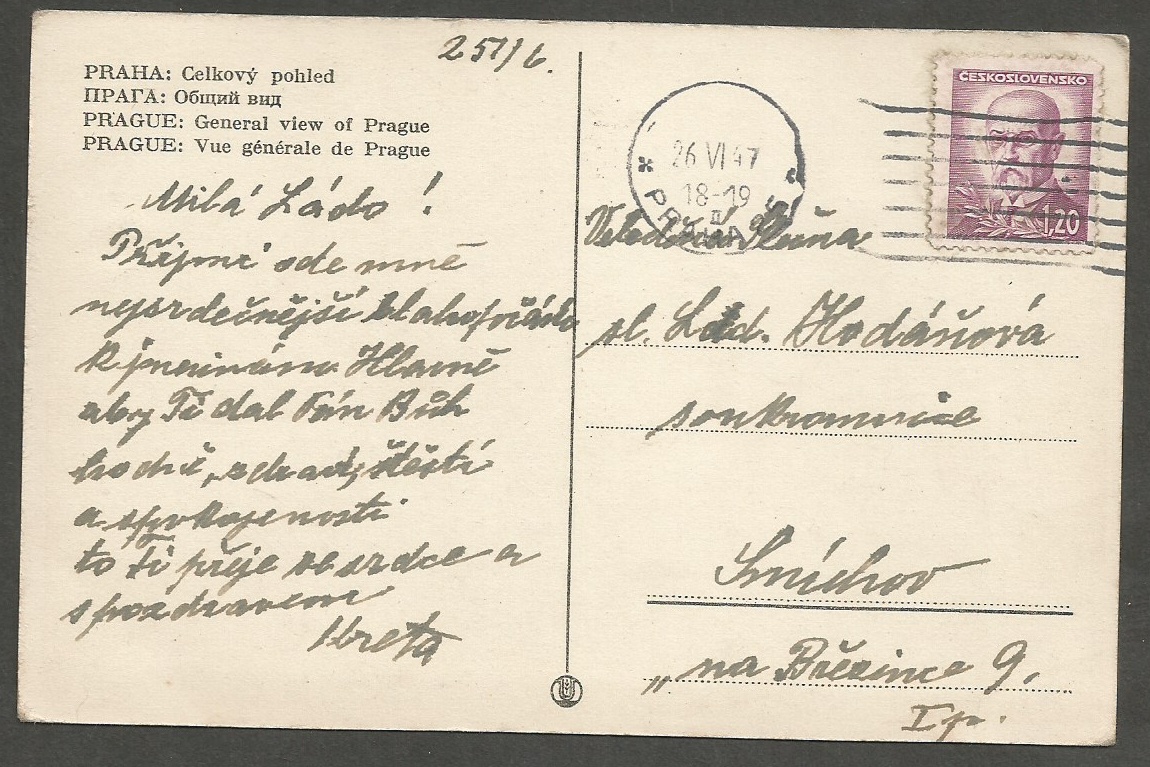 251/6.
PRAHA: Celkový pohled
ПРАГА: Общий вид
PRAGUE: General view of Prague
PRAGUE: Vue générale de Prague
Milá Ládo!
Přijmi ode mně
nejsrdečnější blahopřání
k jmeninám. Hlavně
aby Ti dal Pán Bůh
hodně zdraví, štěstí
a spokojenosti
to Ti přeje ze srdce a
s pozdravem
ČESKOSLOVENSKO
1,20
26 VI 47
18-19
II
PRAHA
Vážená Slečna
sl. Lad. Hodáňová
soukromnice
Smíchov
„na Březince 9.
I p.